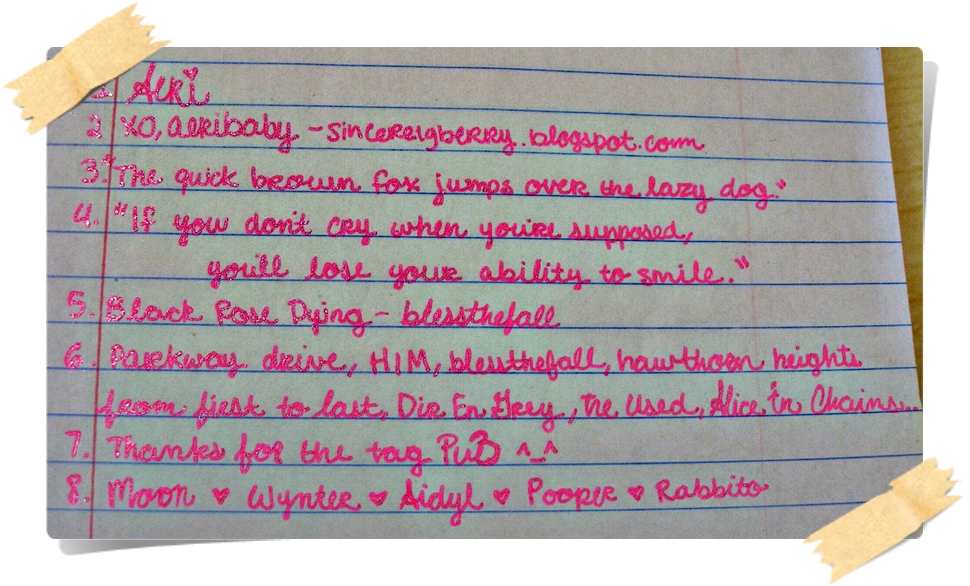 1 Aeri
2 XO, aeribaby - sincereigberry.blogspot.com
3. "The quick brown fox jumps over the lazy dog."
4. "If you don't cry when you're supposed,
you'll lose your ability to smile."
5. Black Rose Dying - blessthefall
6. Parkway drive, HIM, blessthefall, hawthorn heights
from first to last, Dir En Grey, the Used, Alice In Chains...
7. Thanks for the tag PuB ^_^
8. Moon ♥ Wynter ♥ Aidyl ♥ Pooper ♥ Rabbito